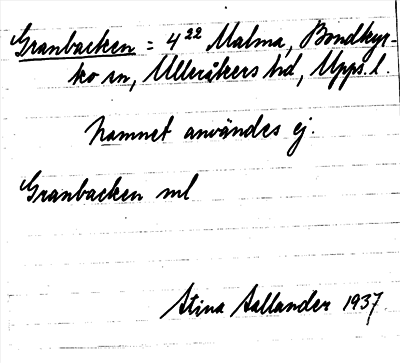 Granbacken = 4²² Malma, Bondkyr-
ko sn, Ulleråkers hd, Upps. l.
Namnet användes ej.
Granbacken ml
Stina Sallander 1937.